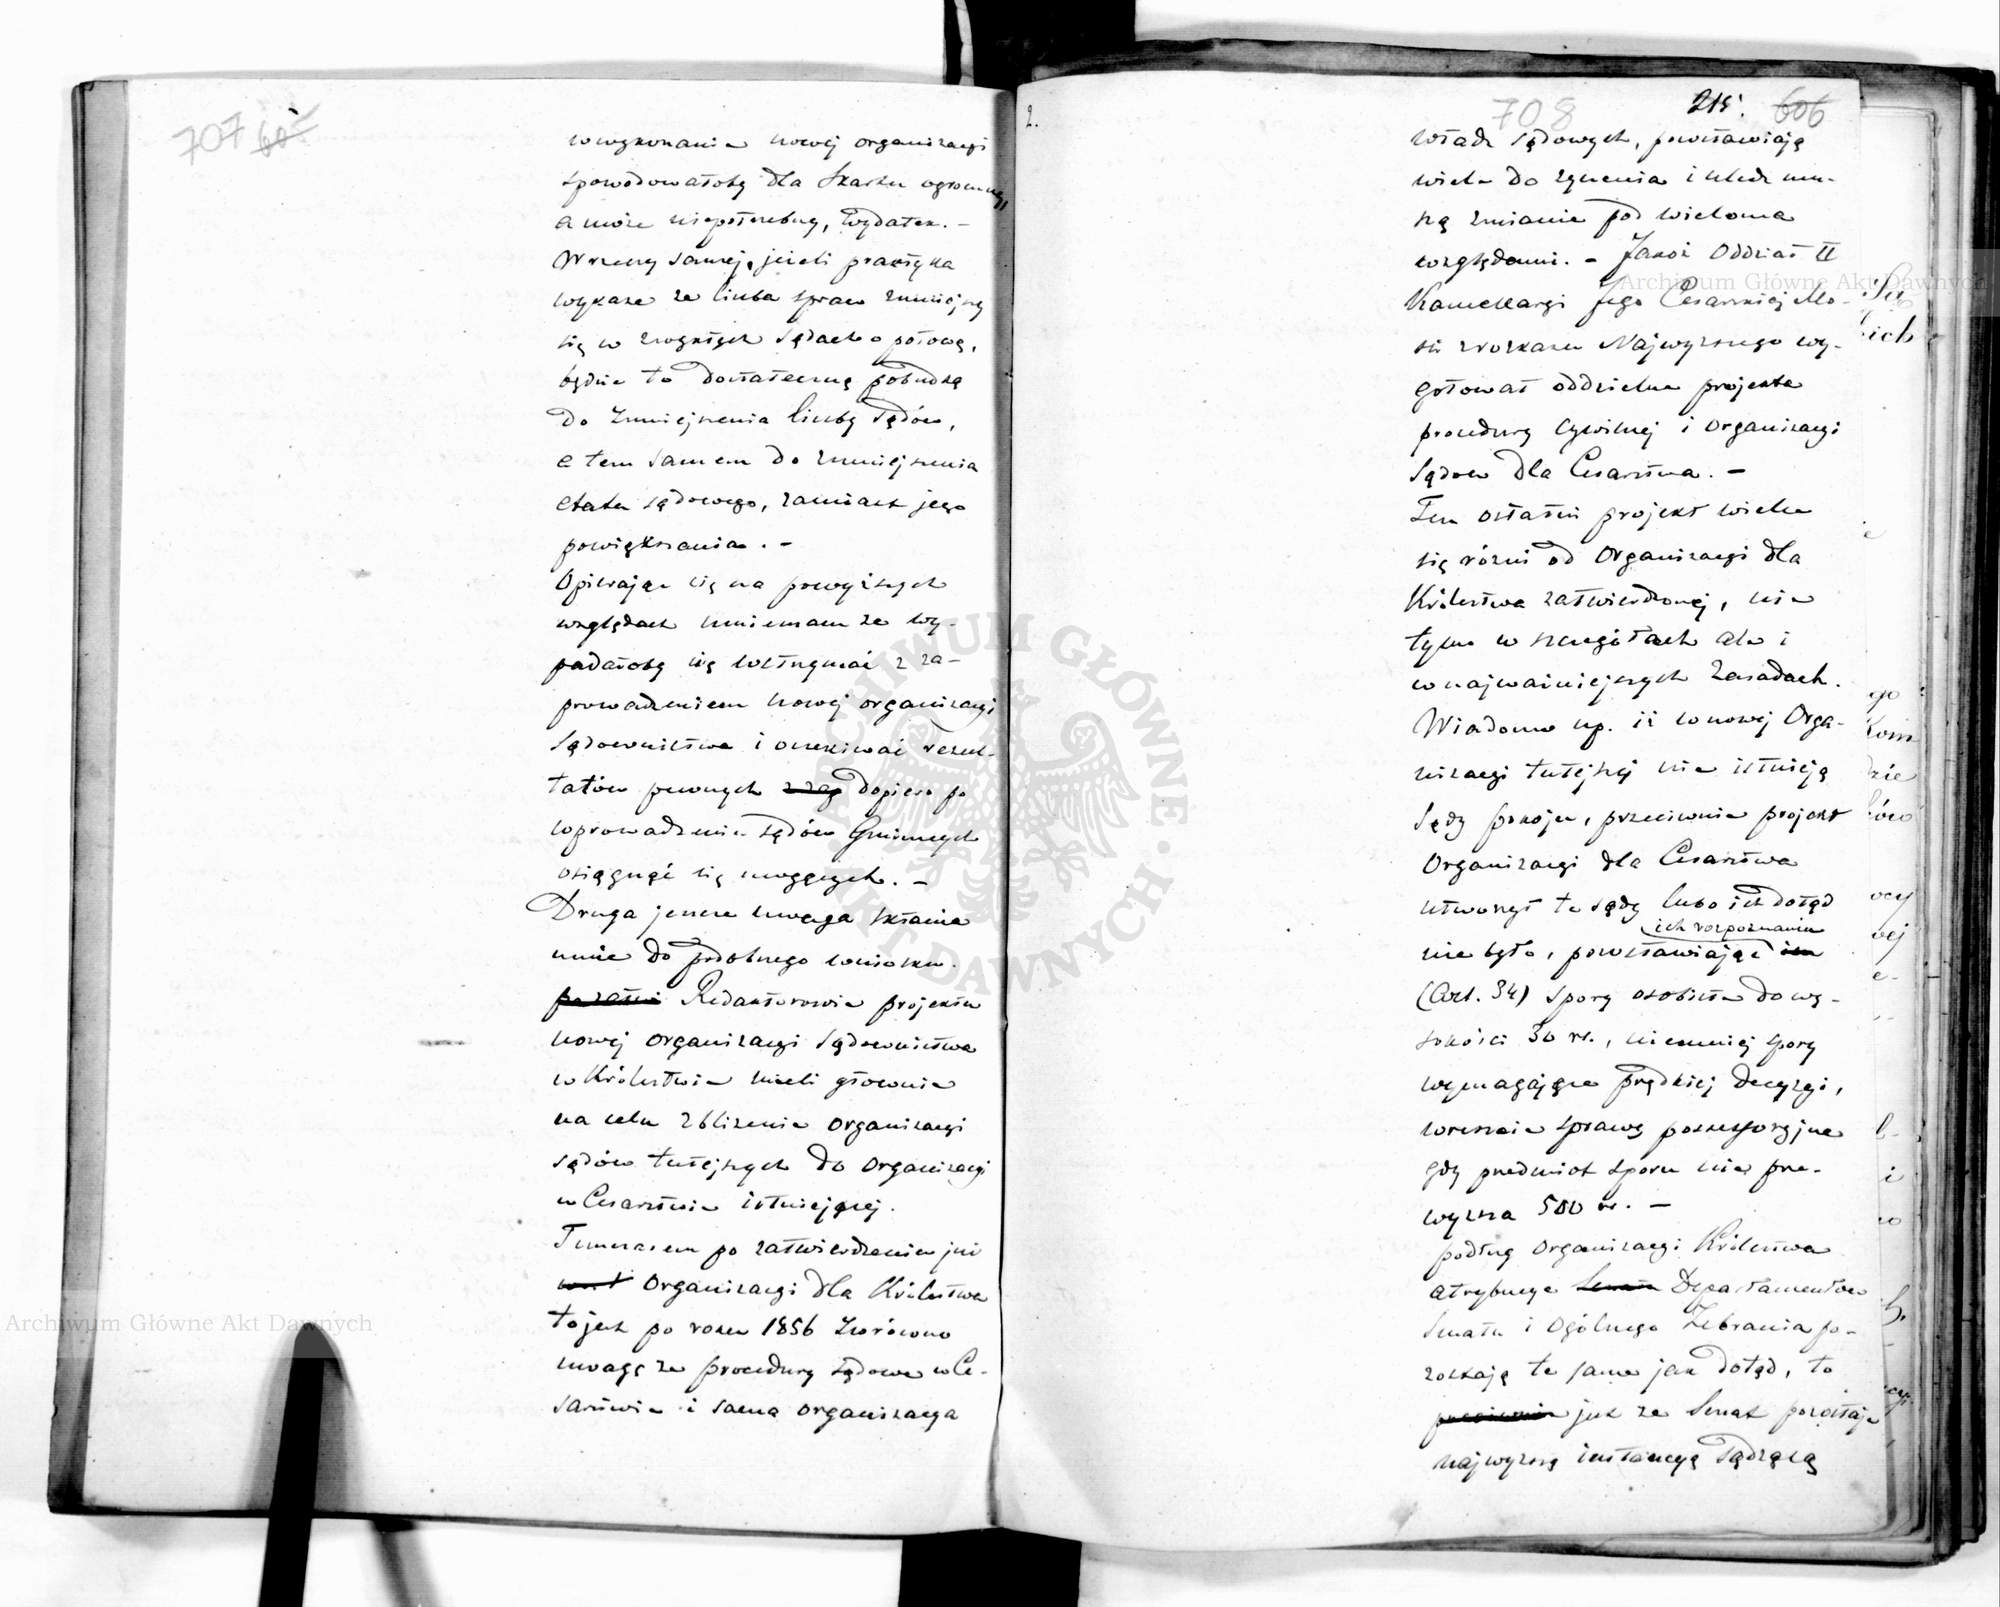 707 605
w wykonanie nowéj organizacyi
spowodowałoby dla Skarbu ogromny,
a może niepotrzebny, wydatek. –
W rzeczy saméj, jeżeli praktyka
wykaże że liczba spraw zmniejszy
się w zwykłych sądach o połowę,
będzie to dostateczną pobudką
do zmniejszenia liczby sądów,
a tem samem do zmniejszenia
etatu sądowego, zamiast jego
powiększania. –
Opierając się na powyższych
względach mniemam że wy-
padałoby się wstrzymać z za-
prowadzeniem nowéj organizacyi
sądownictwa i oczekiwać rezul-
tatów pewnych dopiero po
wprowadzeniu sądów Gminnych
osiągnąć się mogących. –
Druga jeszcze uwaga skłania
mnie do podobnego wniosku.
Redaktorowie projektu
nowéj organizacyi sądownictwa
w Królestwie mieli głównie
na celu zbliżenie organizacyi
sądów tutejszych do organizacyi
w Cesarstwie istniejącéj.
Tymczasem po zatwierdzeniu już
Organizacyi dla Królestwa
to jest po roku 1856 zwrócono
uwagę że procedury sądowe w Ce-
sarstwie i sama organizacya
2.
708 215. 606
władz sądowych, pozostawiają
wiele do życzenia i uledz mu-
szą zmianie pod wieloma
względami. – Jakoż Oddział II
Kancellaryi Jego Cesarskiej Mo-
ści z rozkazu Najwyższego wy-
gotował oddzielne projekta
procedury Cywilnéj i organizacyi
Sądów dla Cesarstwa. –
Ten ostatni projekt wielce
się różni od Organizacyi dla
Królestwa zatwierdzonéj, nie
tylko w szczegółach ale i
w najważniejszych zasadach.
Wiadomo np. iż w nowéj Orga-
nizacyi tutejszéj nie istnieją
Sądy pokoju, przeciwnie projekt
Organizacyi dla Cesarstwa
utworzył te sądy lubo ich dotąd
ich rozpoznaniu
nie było, pozostawiając im
(Art. 34) spory osobiste do wy-
sokości 30 rs., niemniej spory
wymagające prędkiéj decyzyi,
wreszcie sprawy possessoryjne
gdy przedmiot sporu nie prze-
wyższa 500 rs. –
podług Organizacyi Królestwa
atrybucye Senatu Departamentów
Senatu i Ogólnego Zebrania po-
zostają te same jak dotąd, to
jest że Senat pozostaje
najwyższą instancyą sądzącą
Archiwum Główne Akt Dawnych
Archiwum Główne Akt Dawnych
ARCHIWUM GŁÓWNE · AKT DAWNYCH ·